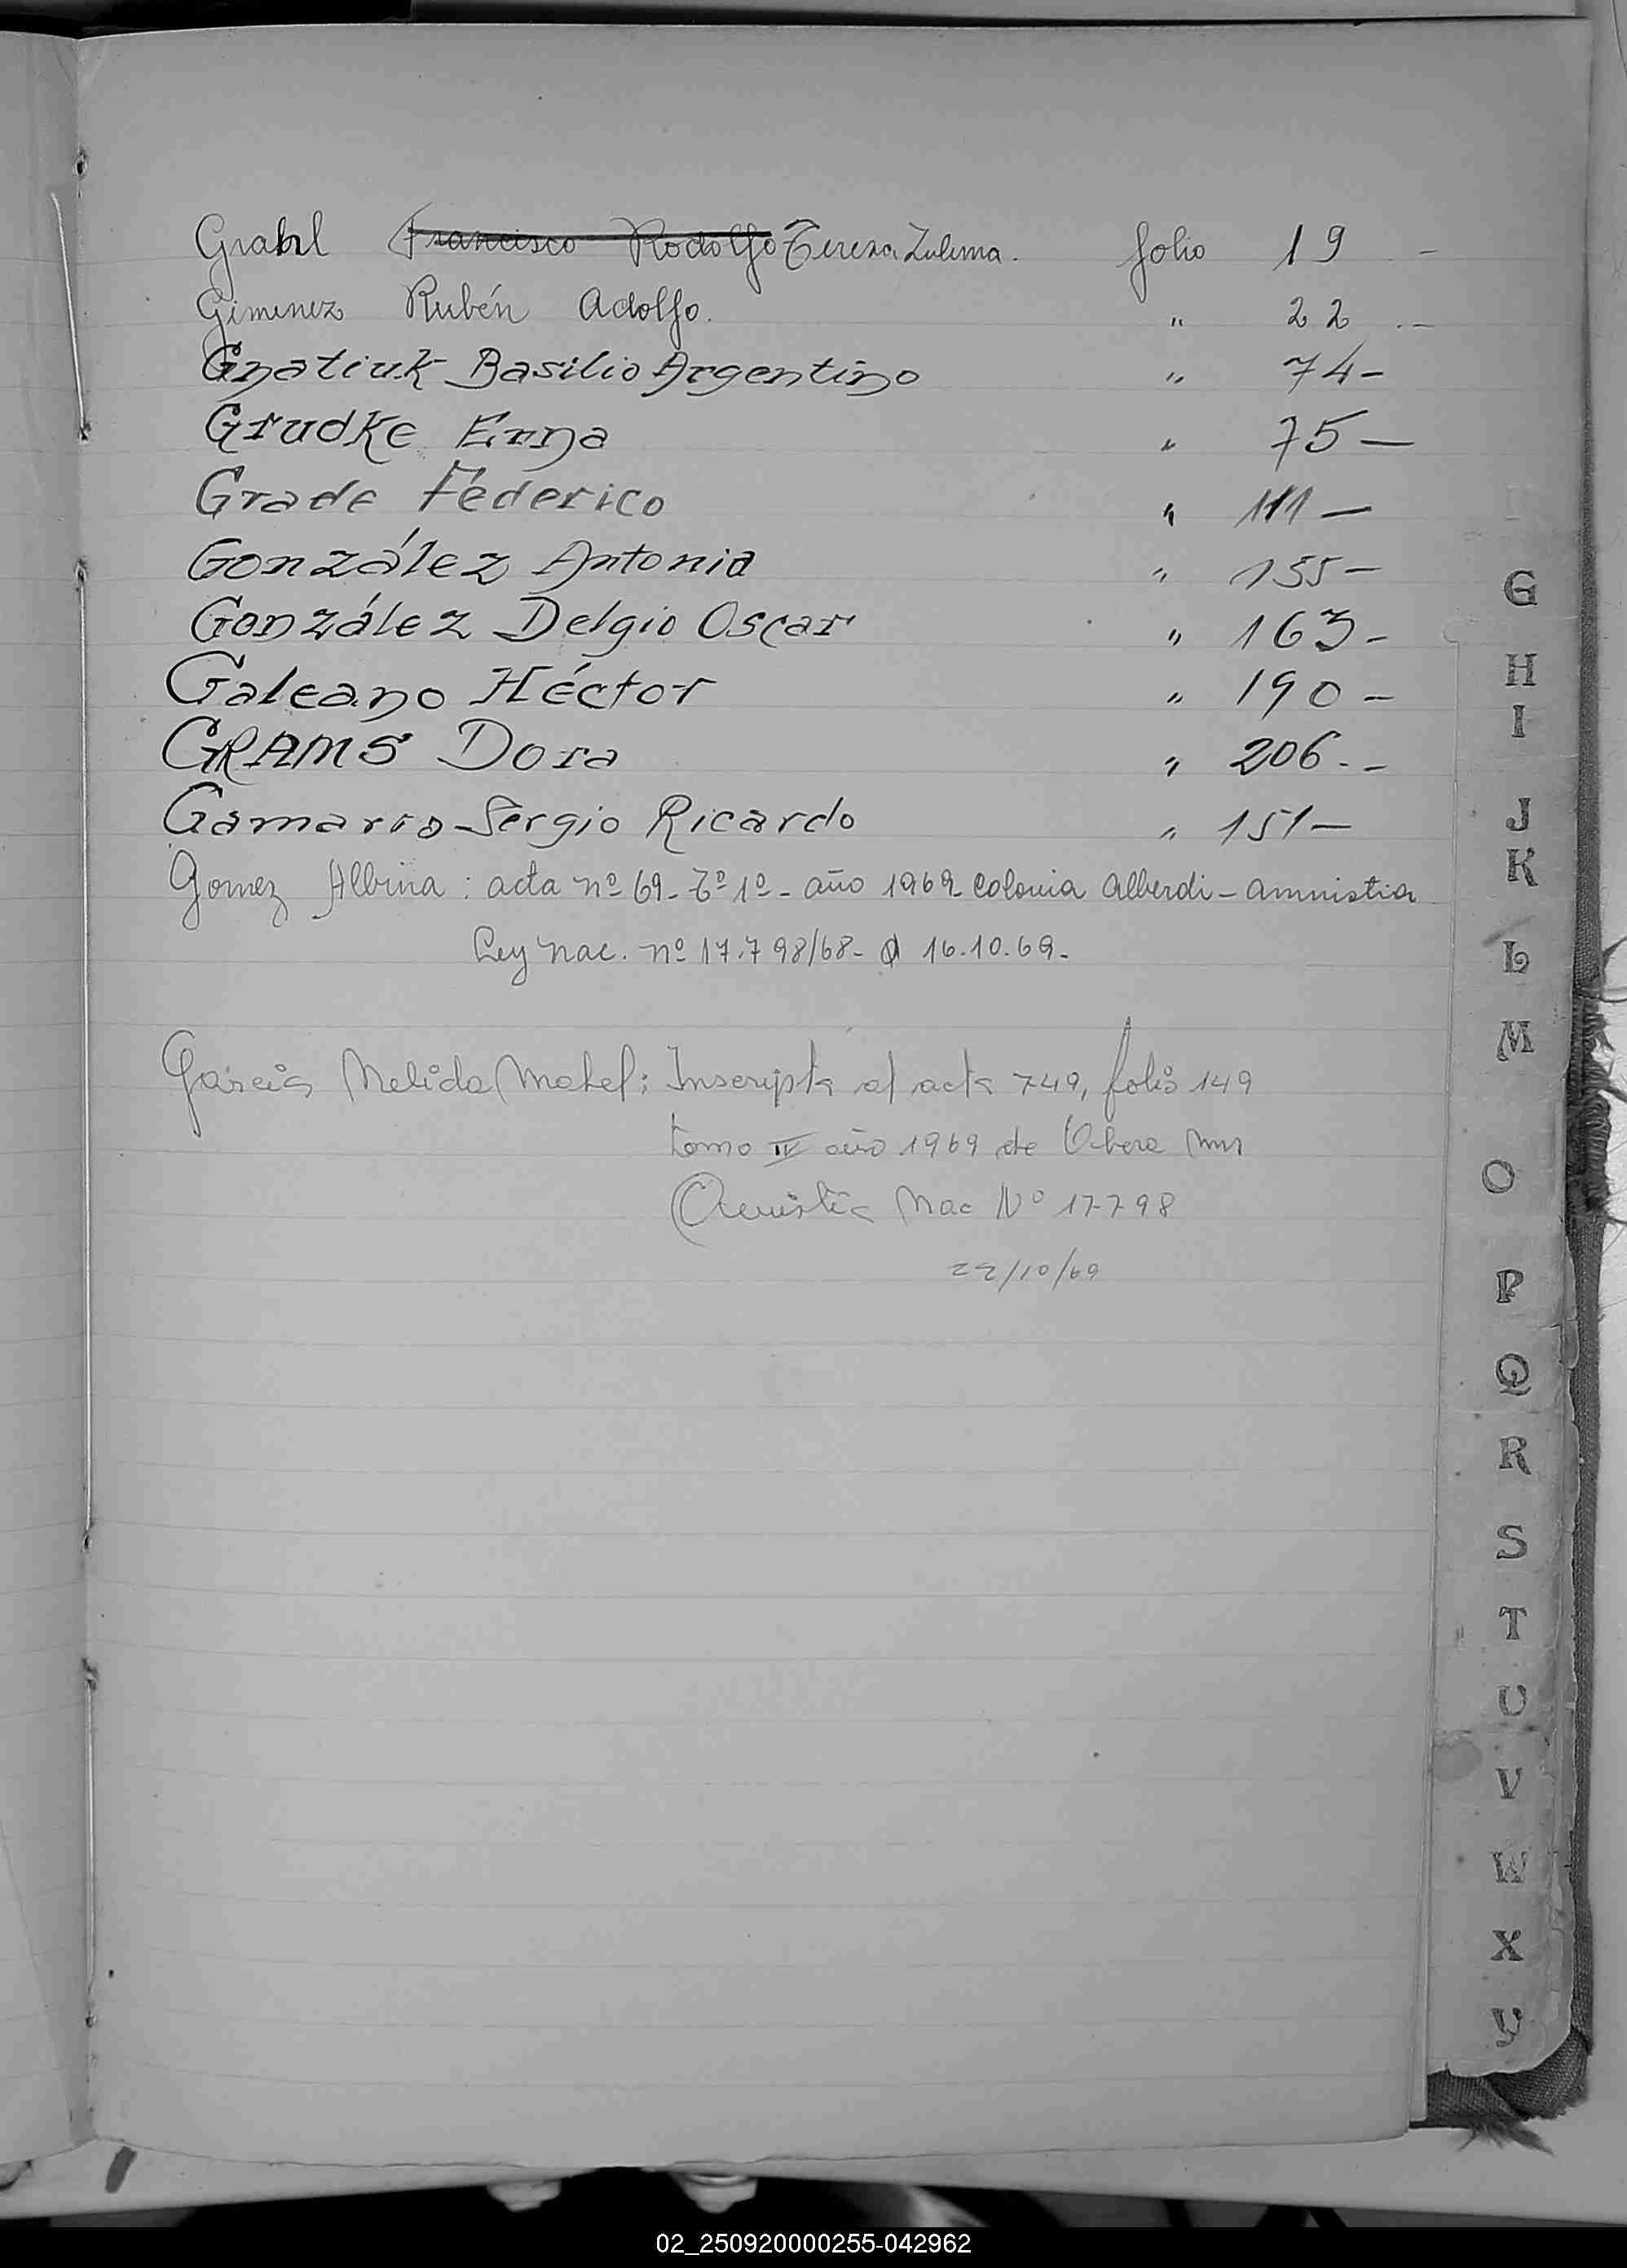 Grabl Francisco Rodolfo Teresa Zulema. folio 19 -
Gimenez Rubén Adolfo. " 22 .-
Gnatiuk Basilio Argentino " 74-
Grudke Erna " 75-
Grade Féderico " 111-
González Antonia " 155-
González Delgio Oscar " 163-
Galeano Héctor " 190-
GRAMS Dora " 206.-
Gamarra Sergio Ricardo " 151-
Gomez Albina : acta nº 69- Tº 1º- año 1969 Colonia Alberdi - amnistia
Ley nac. nº 17.798/68- 16.10.69.-
Garcia Nelida Mabel: Inscripta al acta 749, folio 149
tomo IV año 1969 de Obera Mns
Amnistia Nac Nº 17798
22/10/69
G
H
I
J
K
L
M
O
P
Q
R
S
T
U
V
W
X
Y
02_250920000255-042962